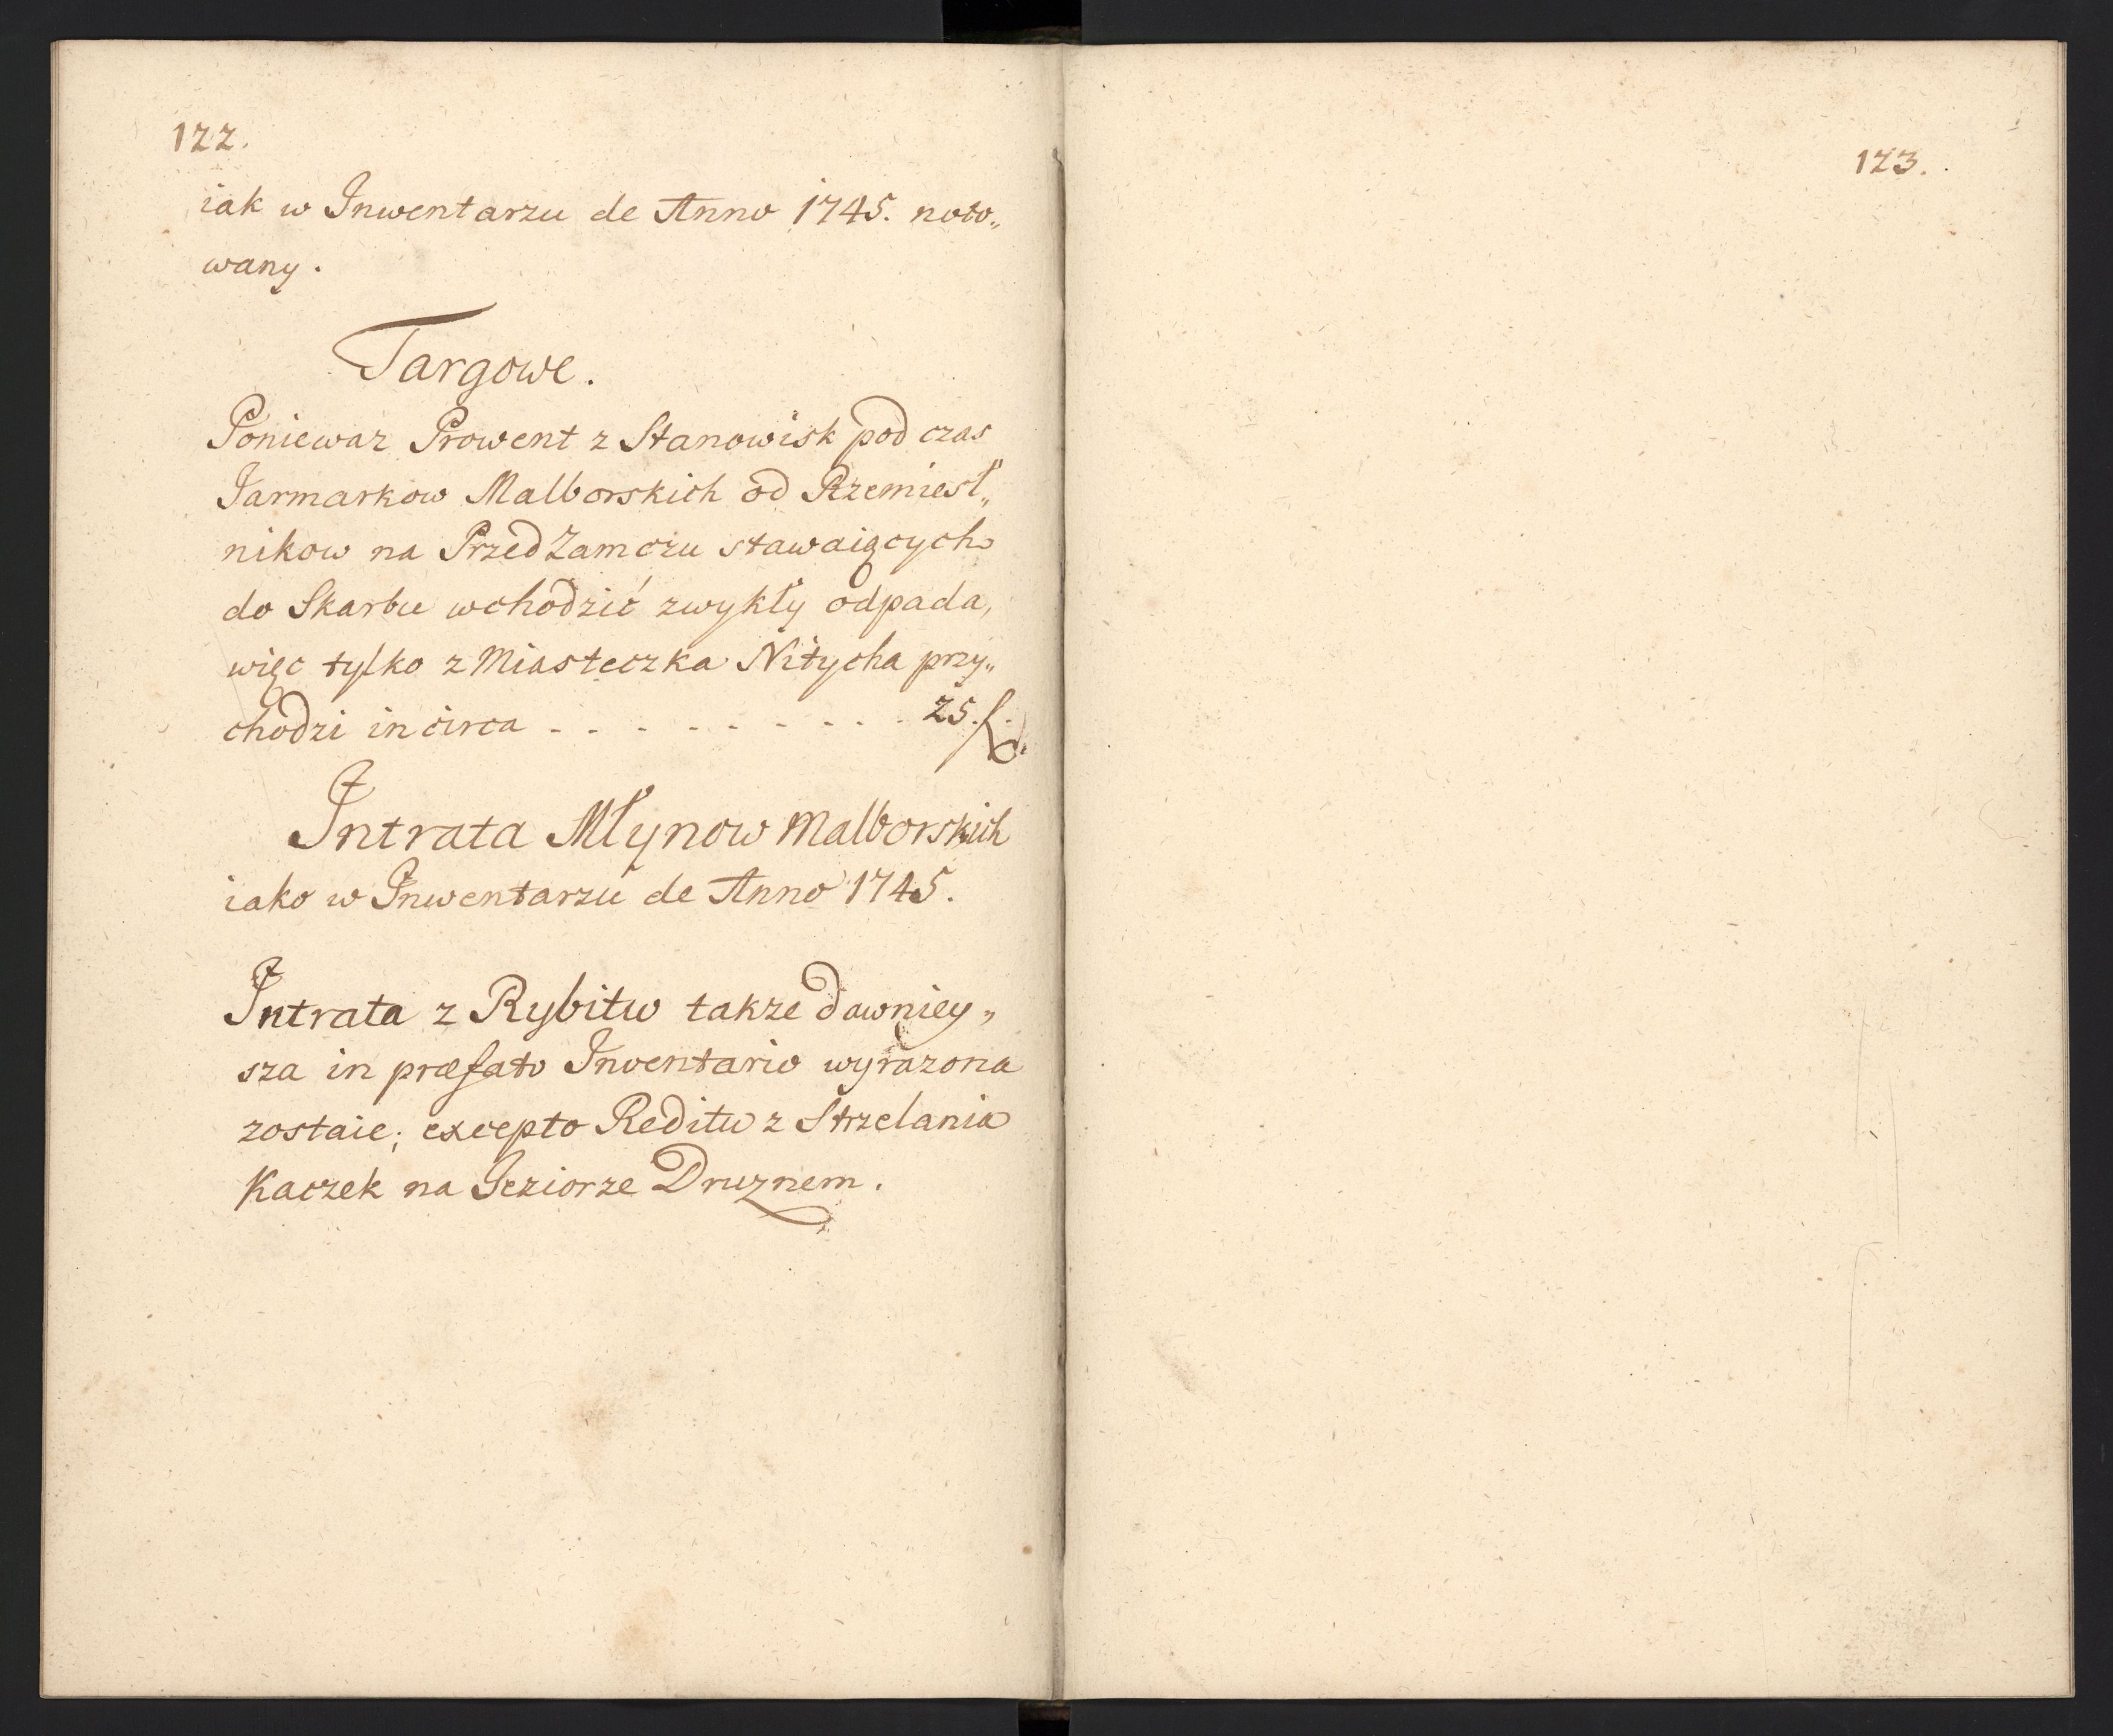 122.
iak w Inwentarzu de Anno 1745. noto„
wany.
Targowe.
Poniewaz Prowent z Stanowisk pod czas
Jarmarkow Malborskich od Rzemiesł„
nikow na PrzedZamczu stawaiących
do Skarbu wchodzić zwykły odpada,
więc tylko z Miasteczka Nitycha przy„
chodzi in circa - - - - - - - - - 25. f.
Intrata Młynow Malborskich
iako w Inwentarzu de Anno 1745.
Intrata z Rybitw takze dawniey„
sza in præfato Inventario wyrazona
zostaie; excepto Reditu z Strzelania
Kaczek na Jeziorze Druznem.
123.